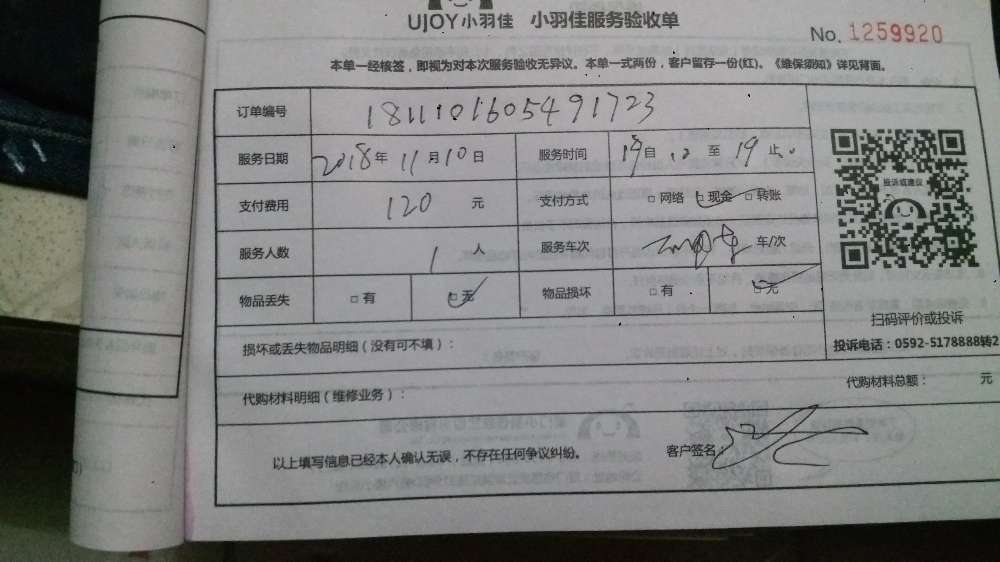 UJOY小羽佳 小羽佳服务验收单
No. 1259920
本单一经核签，即视为对本次服务验收无异议。本单一式两份，客户留存一份(红)。《维保须知》详见背面。
订单编号 1811101605491723
服务日期 2018年11月10日 服务时间 自 12 至 19 止
支付费用 120 元 支付方式 □ 网络 □ 现金 □ 转账
服务人数 1 人 服务车次 车/次
物品丢失 □ 有 □ 无 物品损坏 □ 有 □ 无
投诉或建议
扫码评价或投诉
投诉电话：0592-5178888转2
损坏或丢失物品明细（没有可不填）：
代购材料明细（维修业务）： 代购材料总额： 元
以上填写信息已经本人确认无误，不存在任何争议纠纷。 客户签名：